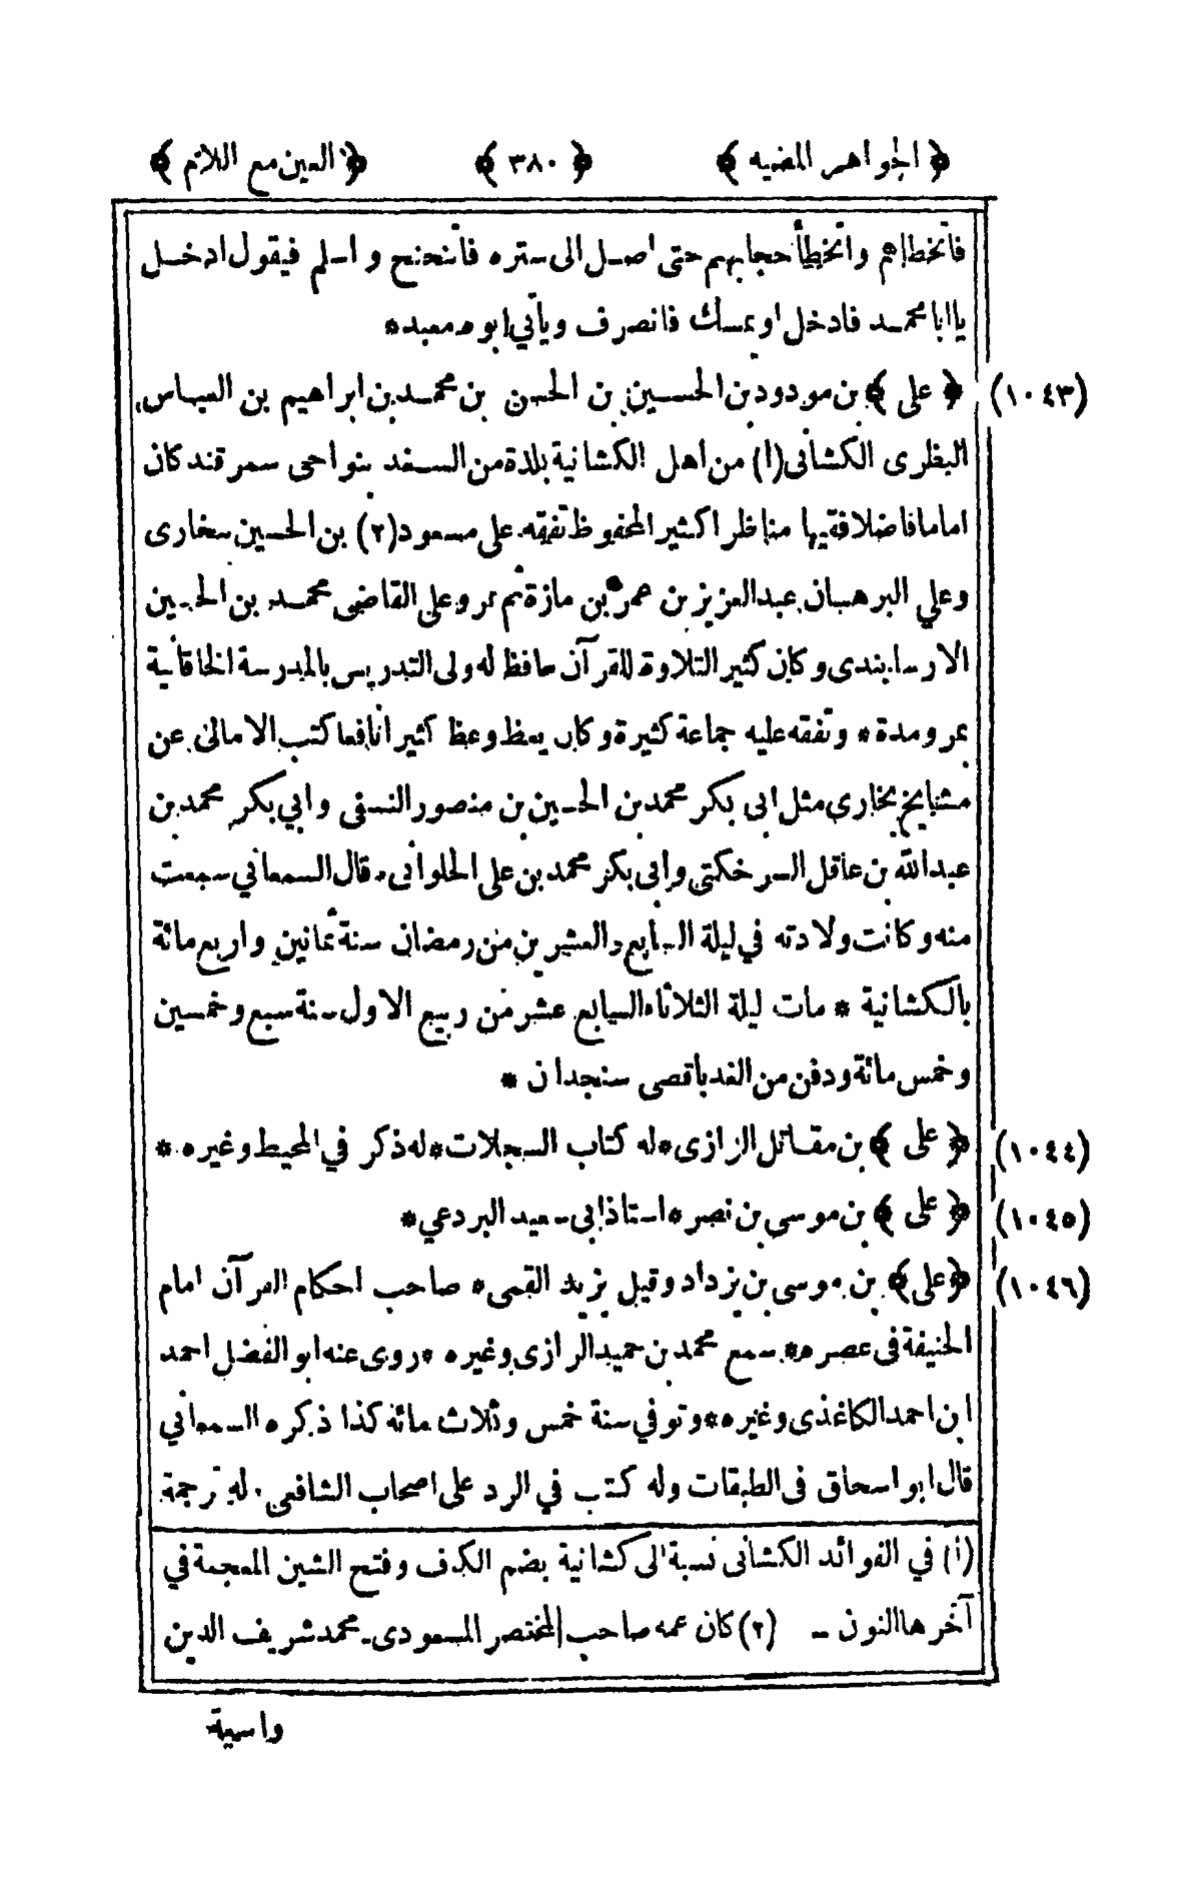 ﴿ الجواهر المضيه ﴾ ﴿ ٣٨٠ ﴾ ﴿ العين مع اللام ﴾
فاتخطاهم واتخطأ حجابهم حتى اصل الى ستره فاتنحنح واسلم فيقول ادخل
يا ابا محمد فادخل او يمسك فانصرف ويأتي ابو معبد *
(١٠٤٣) ﴿ على ﴾ بن مودود بن الحسين بن الحسن بن محمد بن ابراهيم بن العباس
الكشانى (١) من اهل الكشانية بلدة من السغد بنواحى سمرقند كان
اماما فاضلا فقيها مناظرا كثير المحفوظ تفقه على مسعود (٢) بن الحسين ببخارى
وعلي البرهان عبدالعزيز بن عمر بن مازة ثم بمرو على القاضى محمد بن الحسين
الارسابندى وكان كثير التلاوة للقرآن حافظا له ولى التدريس بالمدرسة الخاقانية
بمرو مدة * وتفقه عليه جماعة كثيرة وكان يعظ وعظا كثيرا نافعا كتب الامالى عن
مشايخ بخارى مثل ابى بكر محمد بن الحسين بن منصور النسفى وابي بكر محمد بن
عبدالله بن عاقل السرخكتى وابى بكر محمد بن على الحلوانى . قال السمعاني سمعت
منه وكانت ولادته في ليلة السابع والعشرين من رمضان سنة ثمانين واربع مائة
بالكشانية * مات ليلة الثلاثاء السابع عشر من ربيع الاول سنة سبع وخمسين
وخمس مائة ودفن من الغد باقصى سنجدان *
(١٠٤٤) ﴿ على ﴾ بن مقاتل الرازى * له كتاب السجلات * له ذكر في المحيط وغيره *
(١٠٤٥) ﴿ على ﴾ بن موسى بن نصر * استاذ ابى سعيد البردعي *
(١٠٤٦) ﴿ على ﴾ بن موسى بن يزداد وقيل يزيد القمى * صاحب احكام القرآن امام
الحنيفة فى عصره * سمع محمد بن حميد الرازى وغيره * روى عنه ابو الفضل احمد
ابن احمد الكاغذى وغيره * وتوفي سنة خمس وثلاث مائة كذا ذكره السمعاني
قال ابو اسحاق فى الطبقات وله كتب في الرد على اصحاب الشافعى . له ترجمة
(١) في الفوائد الكشانى نسبة الى كشانية بضم الكاف وفتح الشين المعجمة في
آخرها النون - (٢) كان عمه صاحب المختصر المسعودى - محمد شريف الدين
واسمية